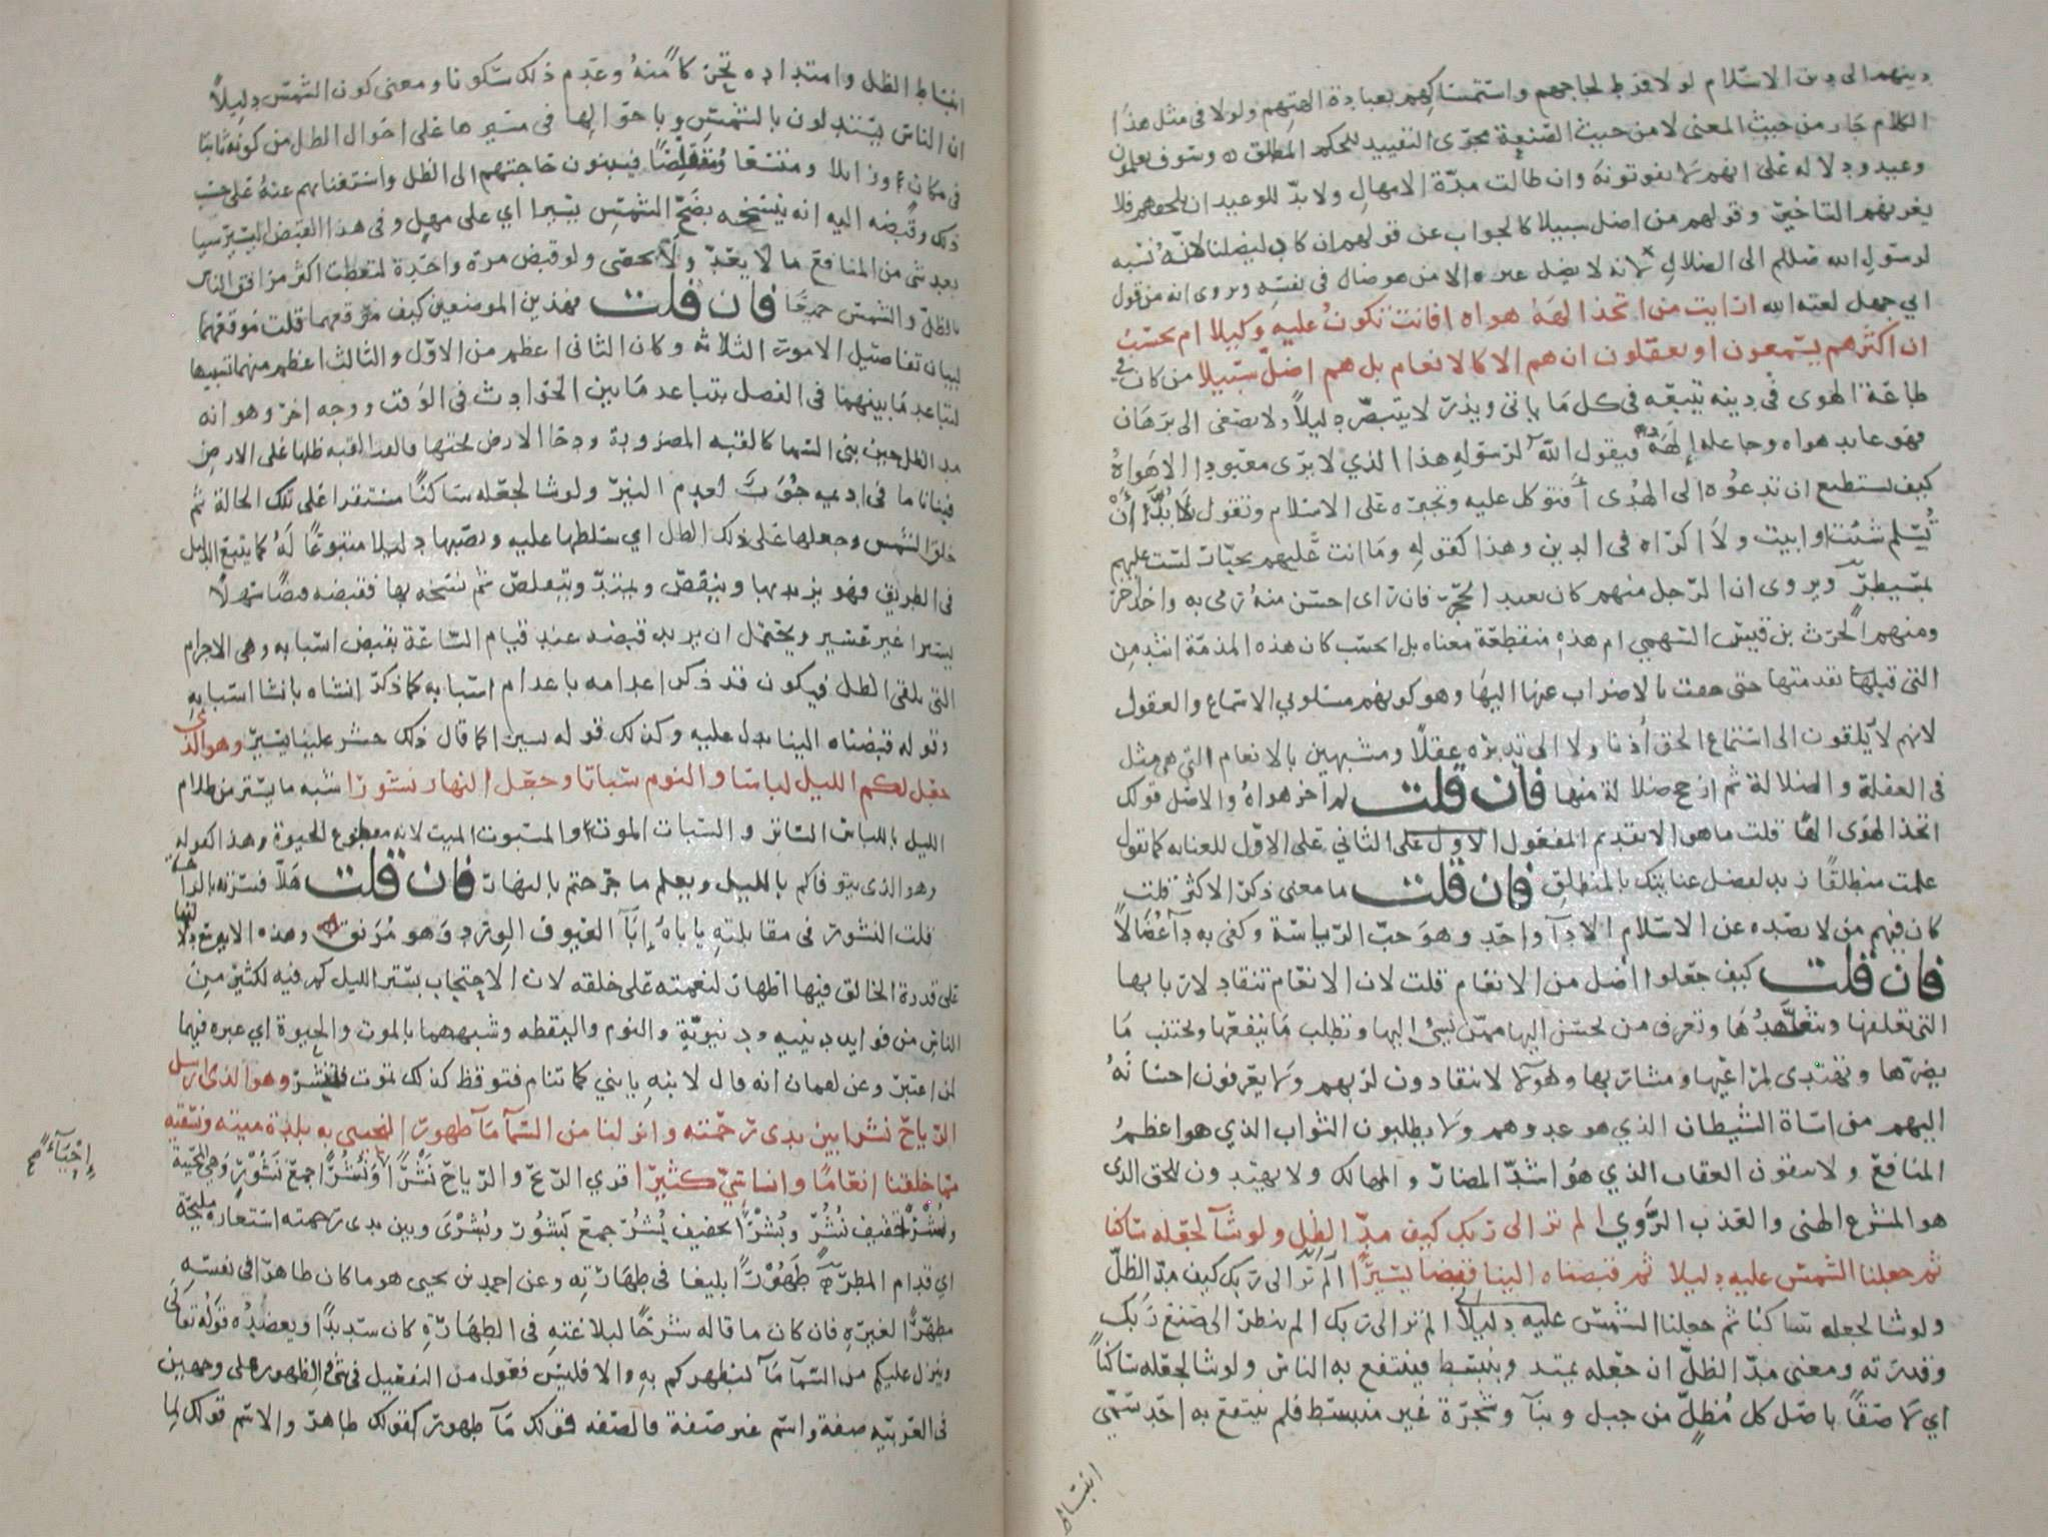 دينهم الى دين الاسلام لولا فرط لجاجهم واستمساكهم بعبادة الهتهم ولولا فى مثل هذا
الكلام جار من حيث المعنى لا من حيث الصنعة مجرى التقييد للحكم المطلق وسوف يعلمون
وعيد ودلالة على انهم لا يفوتونه وان طالت مدة الامهال ولا بد للوعيد ان يلحقهم فلا
يغرنهم التاخير وقولهم من اضل سبيلا كالجواب عن قولهم ان كاد ليضلنا لانه نسبه
لرسول الله صللم الى الضلال لانه لا يضل غيره الا من هو ضال فى نفسه ويروى انه من قول
ابي جهل لعنه الله ارايت من اتخذ الهه هواه افانت تكون عليه وكيلا ام تحسب
ان اكثرهم يسمعون او يعقلون ان هم الا كالانعام بل هم اضل سبيلا من كان في
طاعة الهوى فى دينه يتبعه فى كل ما ياتى ويذر لا يتبصر دليلا ولا يصغى الى برهان
فهو عابد هواه وجاعله إلهه فيقول الله لرسوله هذا الذي لا يرى معبودا الا هواه
كيف تستطيع ان تدعوه الى الهدى أفتوكل عليه وتجبره على الاسلام وتقول لا بد أن
تسلم شئت او ابيت ولا اكراه فى الدين وهذا كقوله وما انت عليهم بجبار لست عليهم
بمسيطر ويروى ان الرجل منهم كان يعبد الحجر فان راى احسن منه رمى به واخذ اخر
ومنهم الحرث بن قيس السهمي ام هذه منقطعة معناه بل اتحسب كان هذه المذمة اشد من
التى قبلها تقدمتها حتى حقت بالاضراب عنها اليها وهو كونهم مسلوبي الاسماع والعقول
لانهم لا يلقون الى استماع الحق أذنا ولا الى تدبره عقلا ومشبهين بالانعام التي هى مثل
فى الغفلة والضلالة ثم ارجح ضلالة منها فان قلت لم اخر هواه والاصل قولك
اتخذ الهوى الها قلت ما هو الا تقديم المفعول الاول على الثاني على الاول للعنايه كما تقول
علمت منطلقا زيد لفضل عنايتك بالمنطلق فان قلت ما معنى ذكر الاكثر قلت
كان فيهم من لا يصده عن الاسلام الا دآ واحد وهو حب الرياسة وكفى به دآ عضالا
فان قلت كيف جعلوا اضل من الانعام قلت لان الانعام تنقاد لاربابها
التى تعلفها وتتعهدها وتعرف من يحسن اليها ممن يسئ اليها وتطلب ما ينفعها وتجتنب ما
يضرها وتهتدى لمراعيها ومشاربها وهولا لا ينقادون لربهم ولا يعرفون احسانه
اليهم من اساة الشيطان الذي هو عدوهم ولا يطلبون الثواب الذي هو اعظم
المنافع ولا يتقون العقاب الذي هو اشد المضار والمهالك ولا يهتدون للحق الذى
هو المشرع الهنى والعذب الروي الم تر الى ربك كيف مد الظل ولو شآ لجعله ساكنا
ثم جعلنا الشمس عليه دليلا ثم قبضناه الينا قبضا يسيرا الم تر الى ربك كيف مد الظل
ولو شا لجعله ساكنا ثم جعلنا الشمس عليه دليلا الم تر الى ربك الم ينظر الى صنع ربك
وقدرته ومعنى مد الظل ان جعله يمتد وينبسط فينتفع به الناس ولو شا لجعله ساكنا
اي لاصقا باصل كل مظل من جبل وبنآ وشجرة غير منبسط فلم ينتفع به احد سمي
انبساط
انبساط الظل وامتداده تحركا منه وعدم ذلك سكونا ومعنى كون الشمس دليلا
ان الناس يستدلون بالشمس وباحوالها فى مسيرها على احوال الظل من كونه ثابتا
فى مكان وزايلا ومتسعا ومتقلصا فيبنون حاجتهم الى الظل واستغناءهم عنه على حسب
ذلك وقبضه اليه انه ينسخه بضح الشمس يسيرا اي على مهل وفى هذا القبض اليسير شيا
بعد شى من المنافع ما لا يعد ولا يحصى ولو قبض مرة واحدة لتعطلت اكثر مرافق الناس
بالظل والشمس جميعا فان قلت فهذين الموضعين كيف موقعهما قلت موقعهما
لبيان تفاضل الامور الثلاثة وكان الثانى اعظم من الاول والثالث اعظم منهما تشبيها
لتباعد ما بينهما فى الفضل بتباعد ما بين الحوادث فى الوقت ووجه اخر وهو انه
مد الظل حين بنى السما كالقبه المضروبة ودحا الارض تحتها فالقت القبه ظلها على الارض
فينانا ما فى اديمه جوب لعدم النير ولو شا لجعله ساكنا مستقرا على تلك الحالة ثم
خلق الشمس وجعلها على ذلك الظل اي سلطها عليه ونصبها دليلا متبوعا له كما يتبع الدليل
فى الطريق فهو يزيد بها وينقص ويمتد ويتقلص ثم نسخه بها فقبضه قبضا سهلا
يسيرا غير عسير ويحتمل ان يريد قبضه عند قيام الساعة بقبض اسبابه وهى الاجرام
التى تلقى الظل فيكون قد ذكر اعدامه باعدام اسبابه كما ذكر انشاه بانشا اسبابه
وقوله قبضناه الينا يدل عليه وكذلك قوله يسيرا كما قال ذلك حشر علينا يسير وهو الذى
جعل لكم الليل لباسا والنوم سباتا وجعل النهار نشورا شبه ما يستر من ظلام
الليل باللباس الساتر والسبات الموت والمسبوت الميت لانه مقطوع الحيوة وهذا كقوله
وهو الذى يتوفاكم بالليل ويعلم ما جرحتم بالنهار فان قلت هلا فسرته بالراحة
قلت النشور فى مقابلته ياباه إبآ العيوف الورد وهو مرنق وهذه الاية مع دلالتها
على قدرة الخالق فيها اظهار لنعمته على خلقه لان الاحتجاب بستر الليل كم فيه لكثير من
الناس من فوايد دينيه ودنيوية والنوم واليقظه وشبههما بالموت والحيوة اي عبره فيهما
لمن اعتبر وعن لقمان انه قال لابنه يا بني كما تنام فتوقظ كذلك تموت فتنشر وهو الذى ارسل
الرياح نشرا بين يدى رحمته وانزلنا من السمآ مآ طهورا لنحيى به بلدة ميتا ونسقيه
مما خلقنا انعاما واناسي كثيرا قري الريح والرياح نشرا ونشرا جمع نشور وهى المحيية
إحيآء صح
ونشرا تخفيف نشر وبشرا تخفيف بشر جمع بشور وبشرى وبين يدى رحمته استعارة مليحة
اي قدام المطر طهورا بليغا فى طهارته وعن احمد بن يحيى هو ما كان طاهرا فى نفسه
مطهرا لغيره فان كان ما قاله شرحا لبلاغته فى الطهارة كان سديدا ويعضده قوله تعالى
وينزل عليكم من السمآ مآ ليطهركم به والا فليس فعول من التفعيل فى شئ والطهور على وجهين
فى العربيه صفة واسم غير صفة فالصفه قولك مآ طهور كقولك طاهر والاسم قولك لما